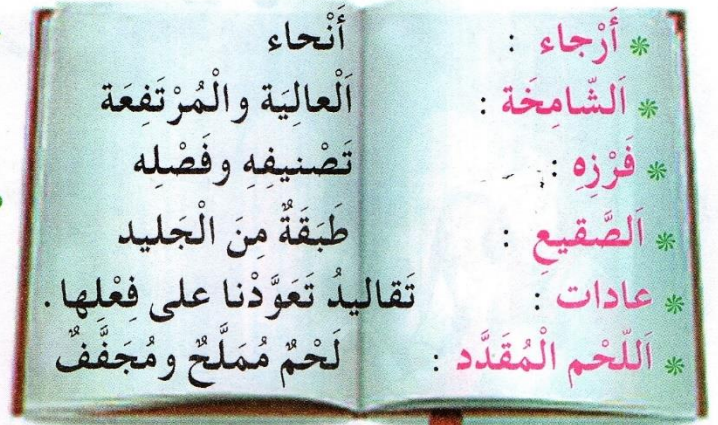 * أَرْجاء : أَنْحاء
* اَلشّامِخَة : اَلْعالِيَة والْمُرْتَفِعَة
* فَرْزِهِ : تَصْنيفِهِ وفَصْلِه
* اَلصَّقيعِ : طَبَقَةٌ مِنَ الْجَليد
* عادات : تَقاليدُ تَعَوَّدْنا على فِعْلها.
* اَللّحْم الْمُقَدَّد : لَحْمٌ مُمَلَّحٌ ومُجَفَّفٌ